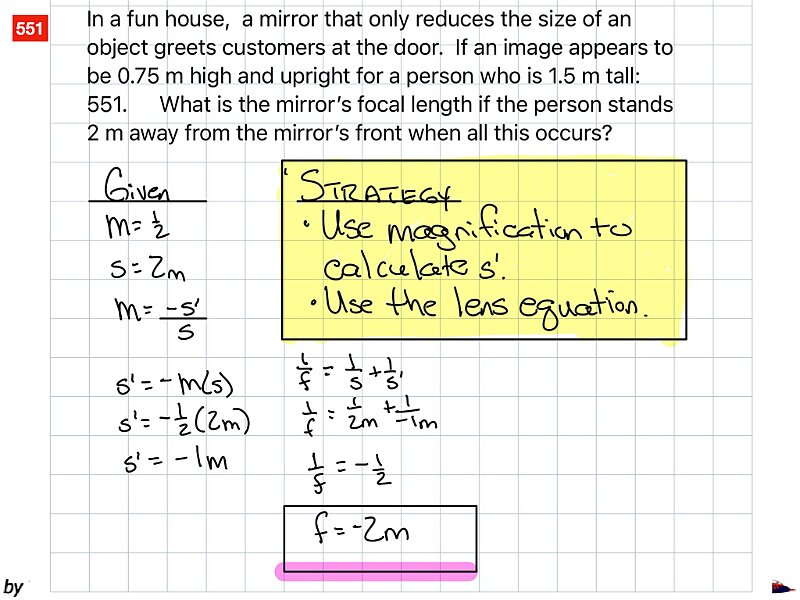 551
In a fun house, a mirror that only reduces the size of an
object greets customers at the door. If an image appears to
be 0.75 m high and upright for a person who is 1.5 m tall:
551. What is the mirror's focal length if the person stands
2 m away from the mirror's front when all this occurs?
Given
m = 1/2
s = 2m
m = -s'/s
s' = -m(s)
s' = -1/2(2m)
s' = -1m
STRATEGY
• Use magnification to
calculate s'.
• Use the lens equation.
1/f = 1/s + 1/s'
1/f = 1/2m + 1/-1m
1/f = -1/2
f = -2m
by